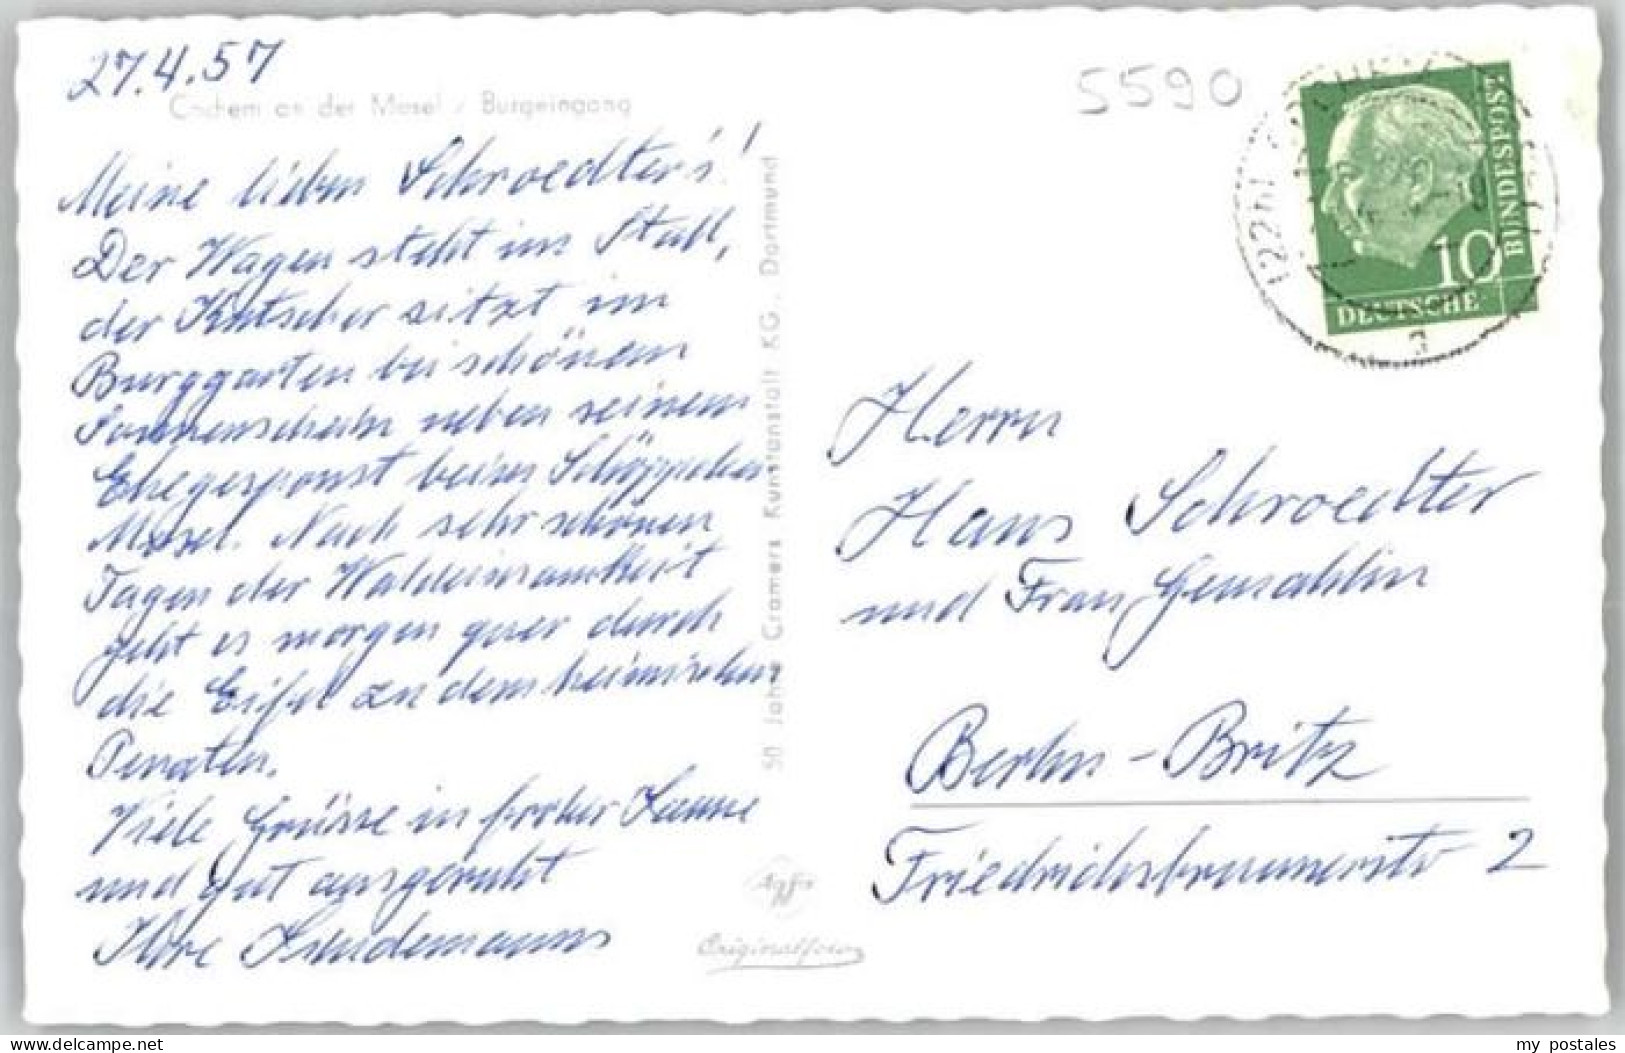 27.4.57
Cochem an der Mosel / Burgeingang
Meine lieben Schroedter's!
Der Wagen steht im Stall,
der Kutscher sitzt im
Burggarten bei schönem
Sonnenschein neben seinem
Ehegesponst beim Schöppchen
Mosel. Nach sehr schönen
Tagen der Waldeinsamkeit
geht es morgen quer durch
die Eifel zu dem heimischen
Penaten.
Viele Grüsse in froher Laune
und gut ausgeruht
Ihre
50 Jahre Cramers Kunstanstalt KG., Dortmund
Agfa
Originalfoto
5590
(22b)
a
10
DEUTSCHE
BUNDESPOST
Herrn
Hans Schroedter
und Frau Gemahlin
Berlin-Britz
Friedrichsbrunnerstr 2
www.delcampe.net
my_postales